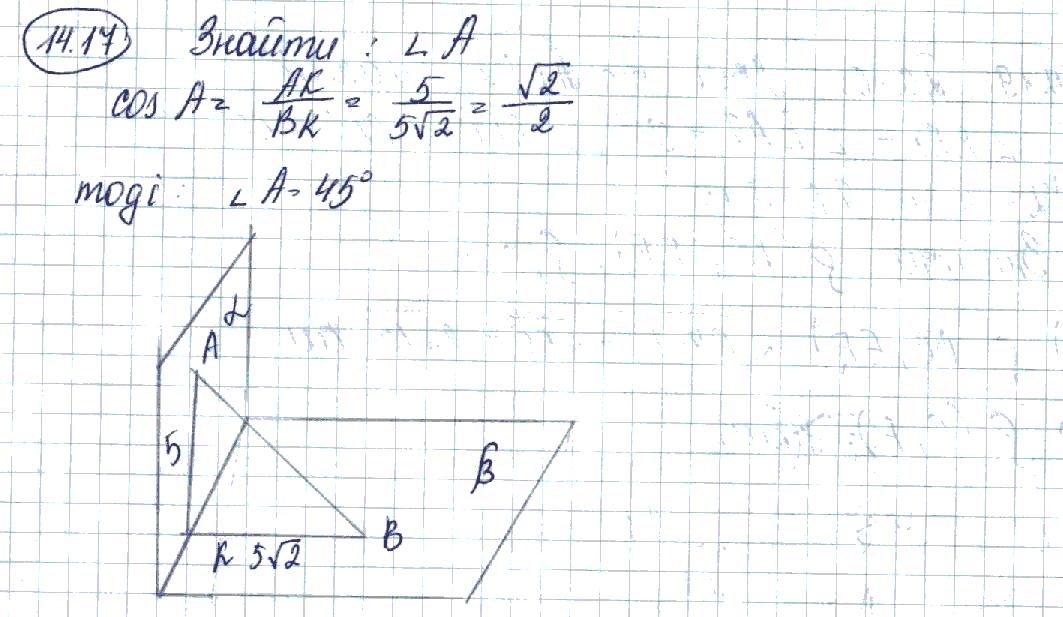 14.17 Знайти : ∠ A
cos A = AK/BK = 5/5√2 = √2/2
тоді : ∠ A = 45°
α
A
5
β
B
K 5√2